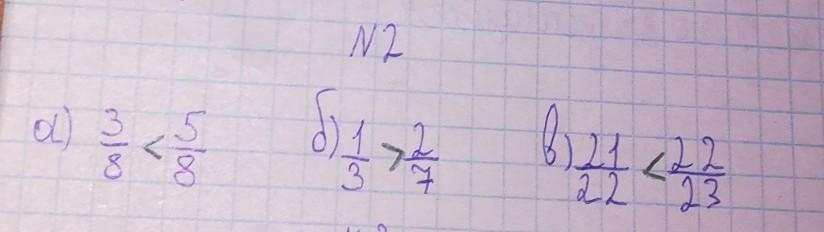 N2
а) 3/8 < 5/8 б) 1/3 > 2/7 в) 21/22 < 22/23